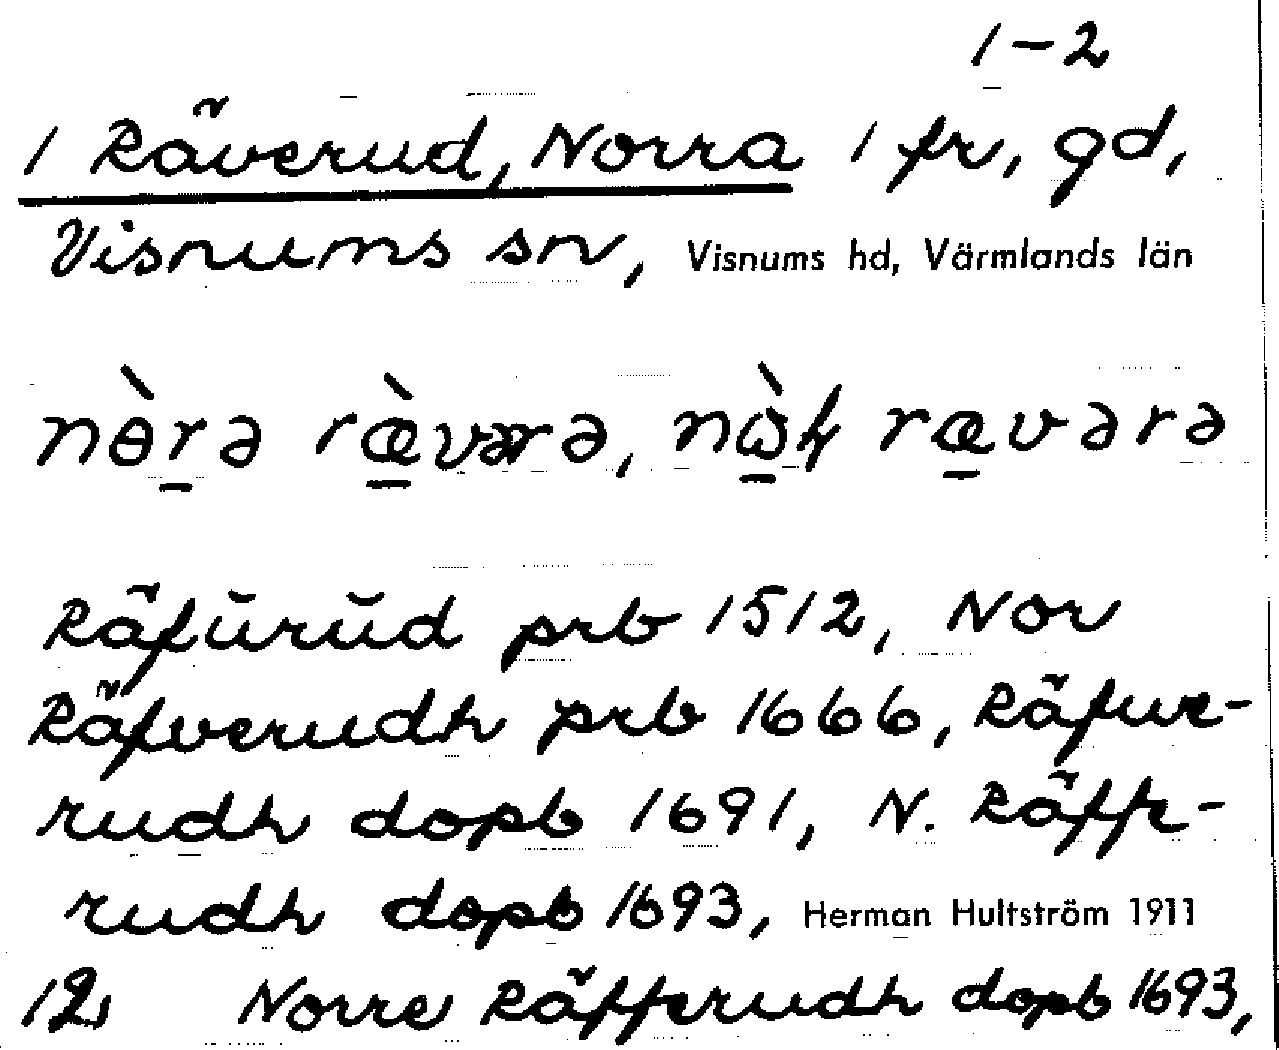 1-2
1 Räverud, Norra 1 fr, gd,
Visnums sn, Visnums hd, Värmlands län
nɵ̀rə ræ̀vərə, nɷ̀ rævərə
Räfŭrŭd prb 1512, Nor
Räfverudh prb 1666, Räfwe-
rudh dopb 1691, N. Räffe-
rudh dopb 1693, Herman Hultström 1911
Norre Räfferudh dopb 1693,